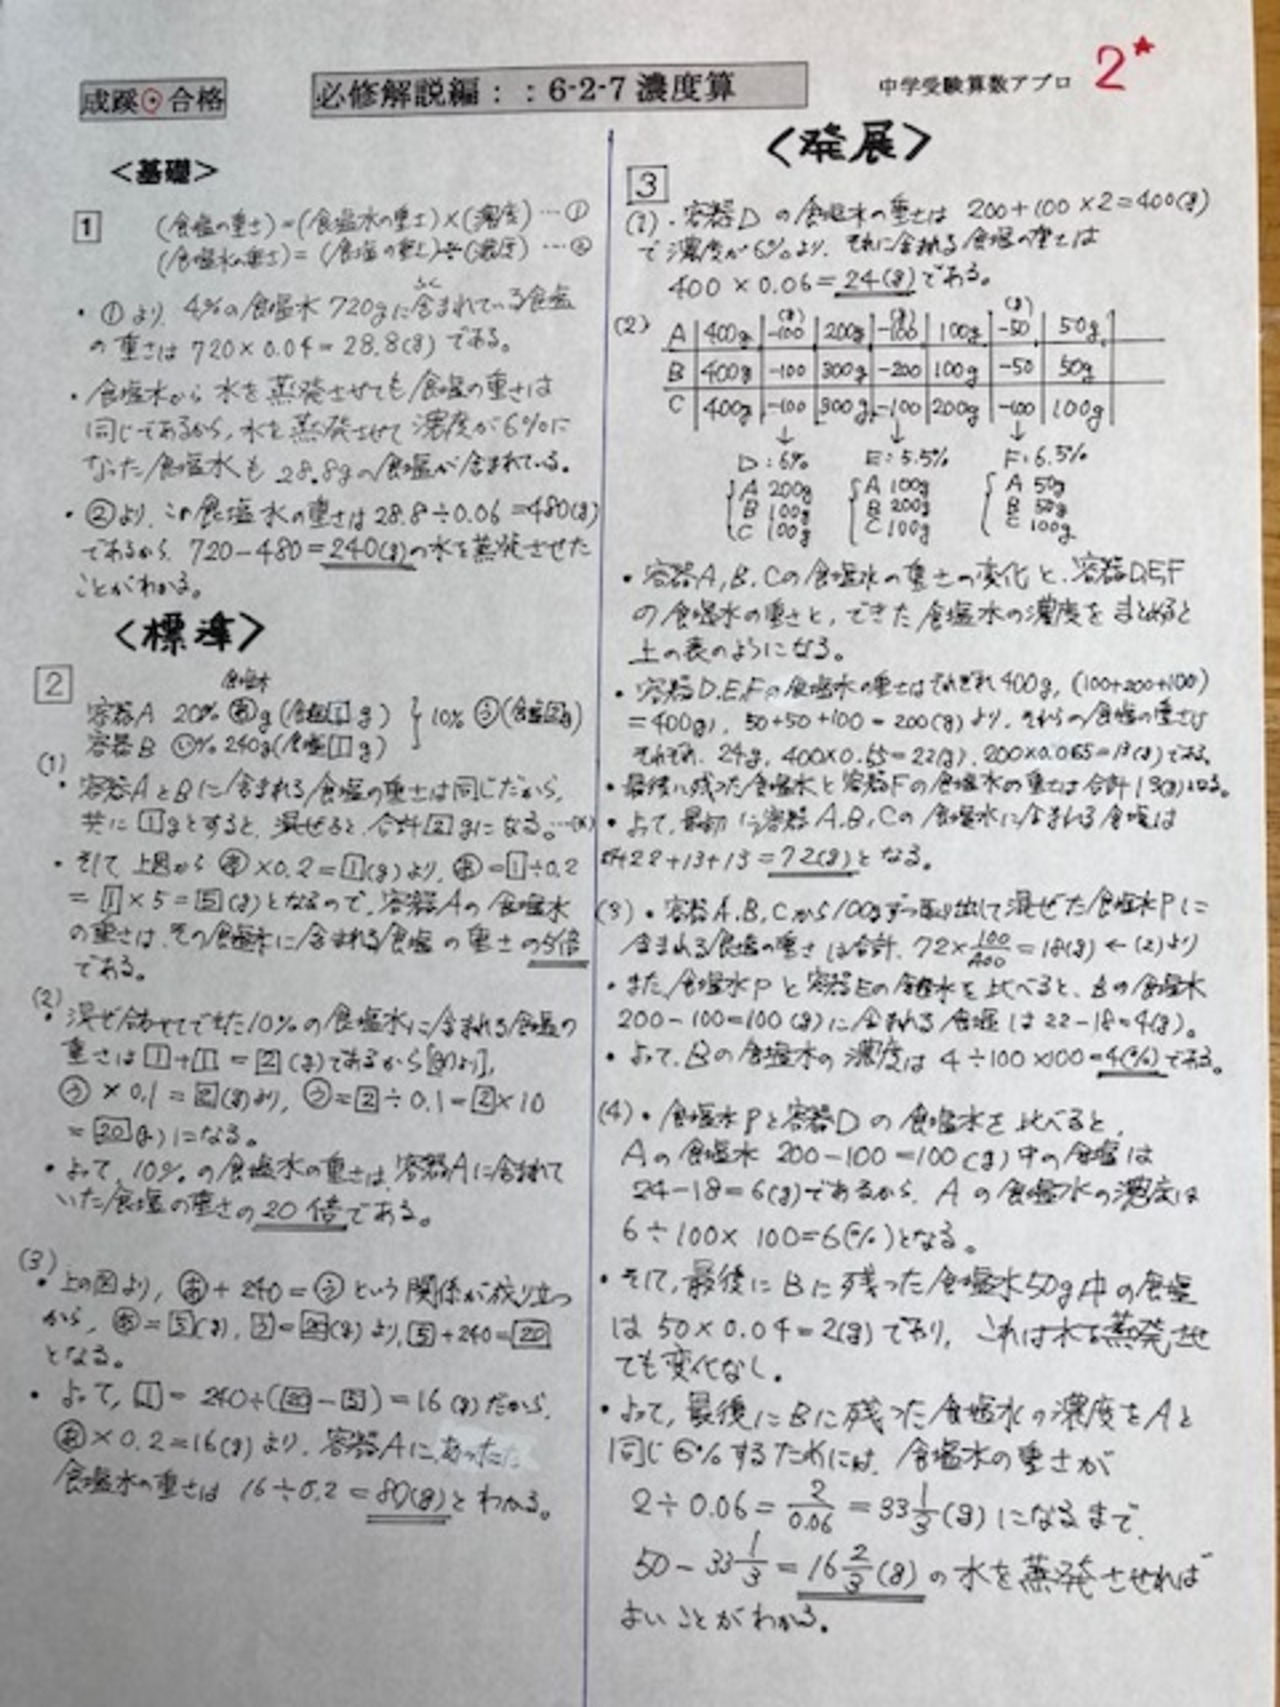 成蹊 合格
必修解説編：：6-2-7 濃度算
中学受験算数アプロ
2*
＜基礎＞
1
(食塩の重さ)=(食塩水の重さ)×(濃度)…①
(食塩水の重さ)=(食塩の重さ)÷(濃度)…②
・①より、4%の食塩水720gに含まれている食塩
の重さは 720×0.04=28.8(g)である。
・食塩水から水を蒸発させても食塩の重さは
同じであるから、水を蒸発させて濃度が6%に
なった食塩水も28.8gの食塩が含まれている。
・②より、この食塩水の重さは28.8÷0.06=480(g)
であるから、720-480=240(g)の水を蒸発させた
ことがわかる。
＜標準＞
2
食塩水
容器A 20% あg(食塩1g)
容器B い% 240g(食塩1g)
10% う(食塩2g)
(1)
・容器AとBに含まれる食塩の重さは同じだから、
共に1gとすると、混ぜると、合計2gになる。…(*)
・そして上図から あ×0.2=1(g)より、あ=1÷0.2
=1×5=5(g)となるので、容器Aの食塩水
の重さは、その食塩水に含まれる食塩の重さの5倍
である。
(2)
・混ぜ合わせてできた10%の食塩水に含まれる食塩の
重さは1+1=2(g)であるから
う×0.1=2(g)より、う=2÷0.1=2×10
=20(g)になる。
・よって、10%の食塩水の重さは、容器Aに含まれて
いた食塩の重さの20倍である。
(3)
・上の図より、あ+240=う という関係が成り立つ
から、あ=5(g)、う=20(g)より、5+240=20
となる。
・よって、1=240÷(20-5)=16(g)だから、
あ×0.2=16(g)より、容器Aにあった
食塩水の重さは 16÷0.2=80(g)とわかる。
＜発展＞
3
(1)・容器Dの食塩水の重さは 200+100×2=400(g)
で濃度が6%より、それに含まれる食塩の重さは
400×0.06=24(g)である。
(2)
(g) (g) (g)
A 400g -100 200g -100 100g -50 50g
B 400g -100 300g -200 100g -50 50g
C 400g -100 300g -100 200g -100 100g
↓ ↓ ↓
D:6% E:5.5% F:6.5%
A 200g A 100g A 50g
B 100g B 200g B 50g
C 100g C 100g C 100g
・容器A,B,Cの食塩水の重さの変化と、容器D,E,F
の食塩水の重さと、できた食塩水の濃度をまとめると
上の表のようになる。
・容器D.E.Fの食塩水の重さはそれぞれ400g, (100+200+100)
=400(g), 50+50+100=200(g)より、それらの食塩の重さは
それぞれ、24g, 400×0.55=22(g), 200×0.065=13(g)である。
・最後に残った食塩水と容器Fの食塩水の重さは合計13(g)となる。
・よって、最初に容器A,B,Cの食塩水に含まれる食塩は
24+22+13+13=72(g)となる。
(3)・容器A.B.Cから100gずつ取り出して混ぜた食塩水Pに
含まれる食塩の重さは合計、72×100/400=18(g) ←(2)より
・また、食塩水Pと容器Eの食塩水を比べると、Bの食塩水
200-100=100(g)に含まれる食塩は22-18=4(g)。
・よって、Bの食塩水の濃度は 4÷100×100=4(%)である。
(4)・食塩水Pと容器Dの食塩水を比べると、
Aの食塩水 200-100=100(g)中の食塩は
24-18=6(g)であるから、Aの食塩水の濃度は
6÷100×100=6(%)となる。
・そして、最後にBに残った食塩水50g中の食塩
は50×0.04=2(g)であり、これは水を蒸発させ
ても変化なし。
・よって、最後にBに残った食塩水の濃度をAと
同じ6%するためには、食塩水の重さが
2÷0.06=2/0.06=33 1/3(g)になるまで、
50-33 1/3=16 2/3(g)の水を蒸発させれば
よいことがわかる。